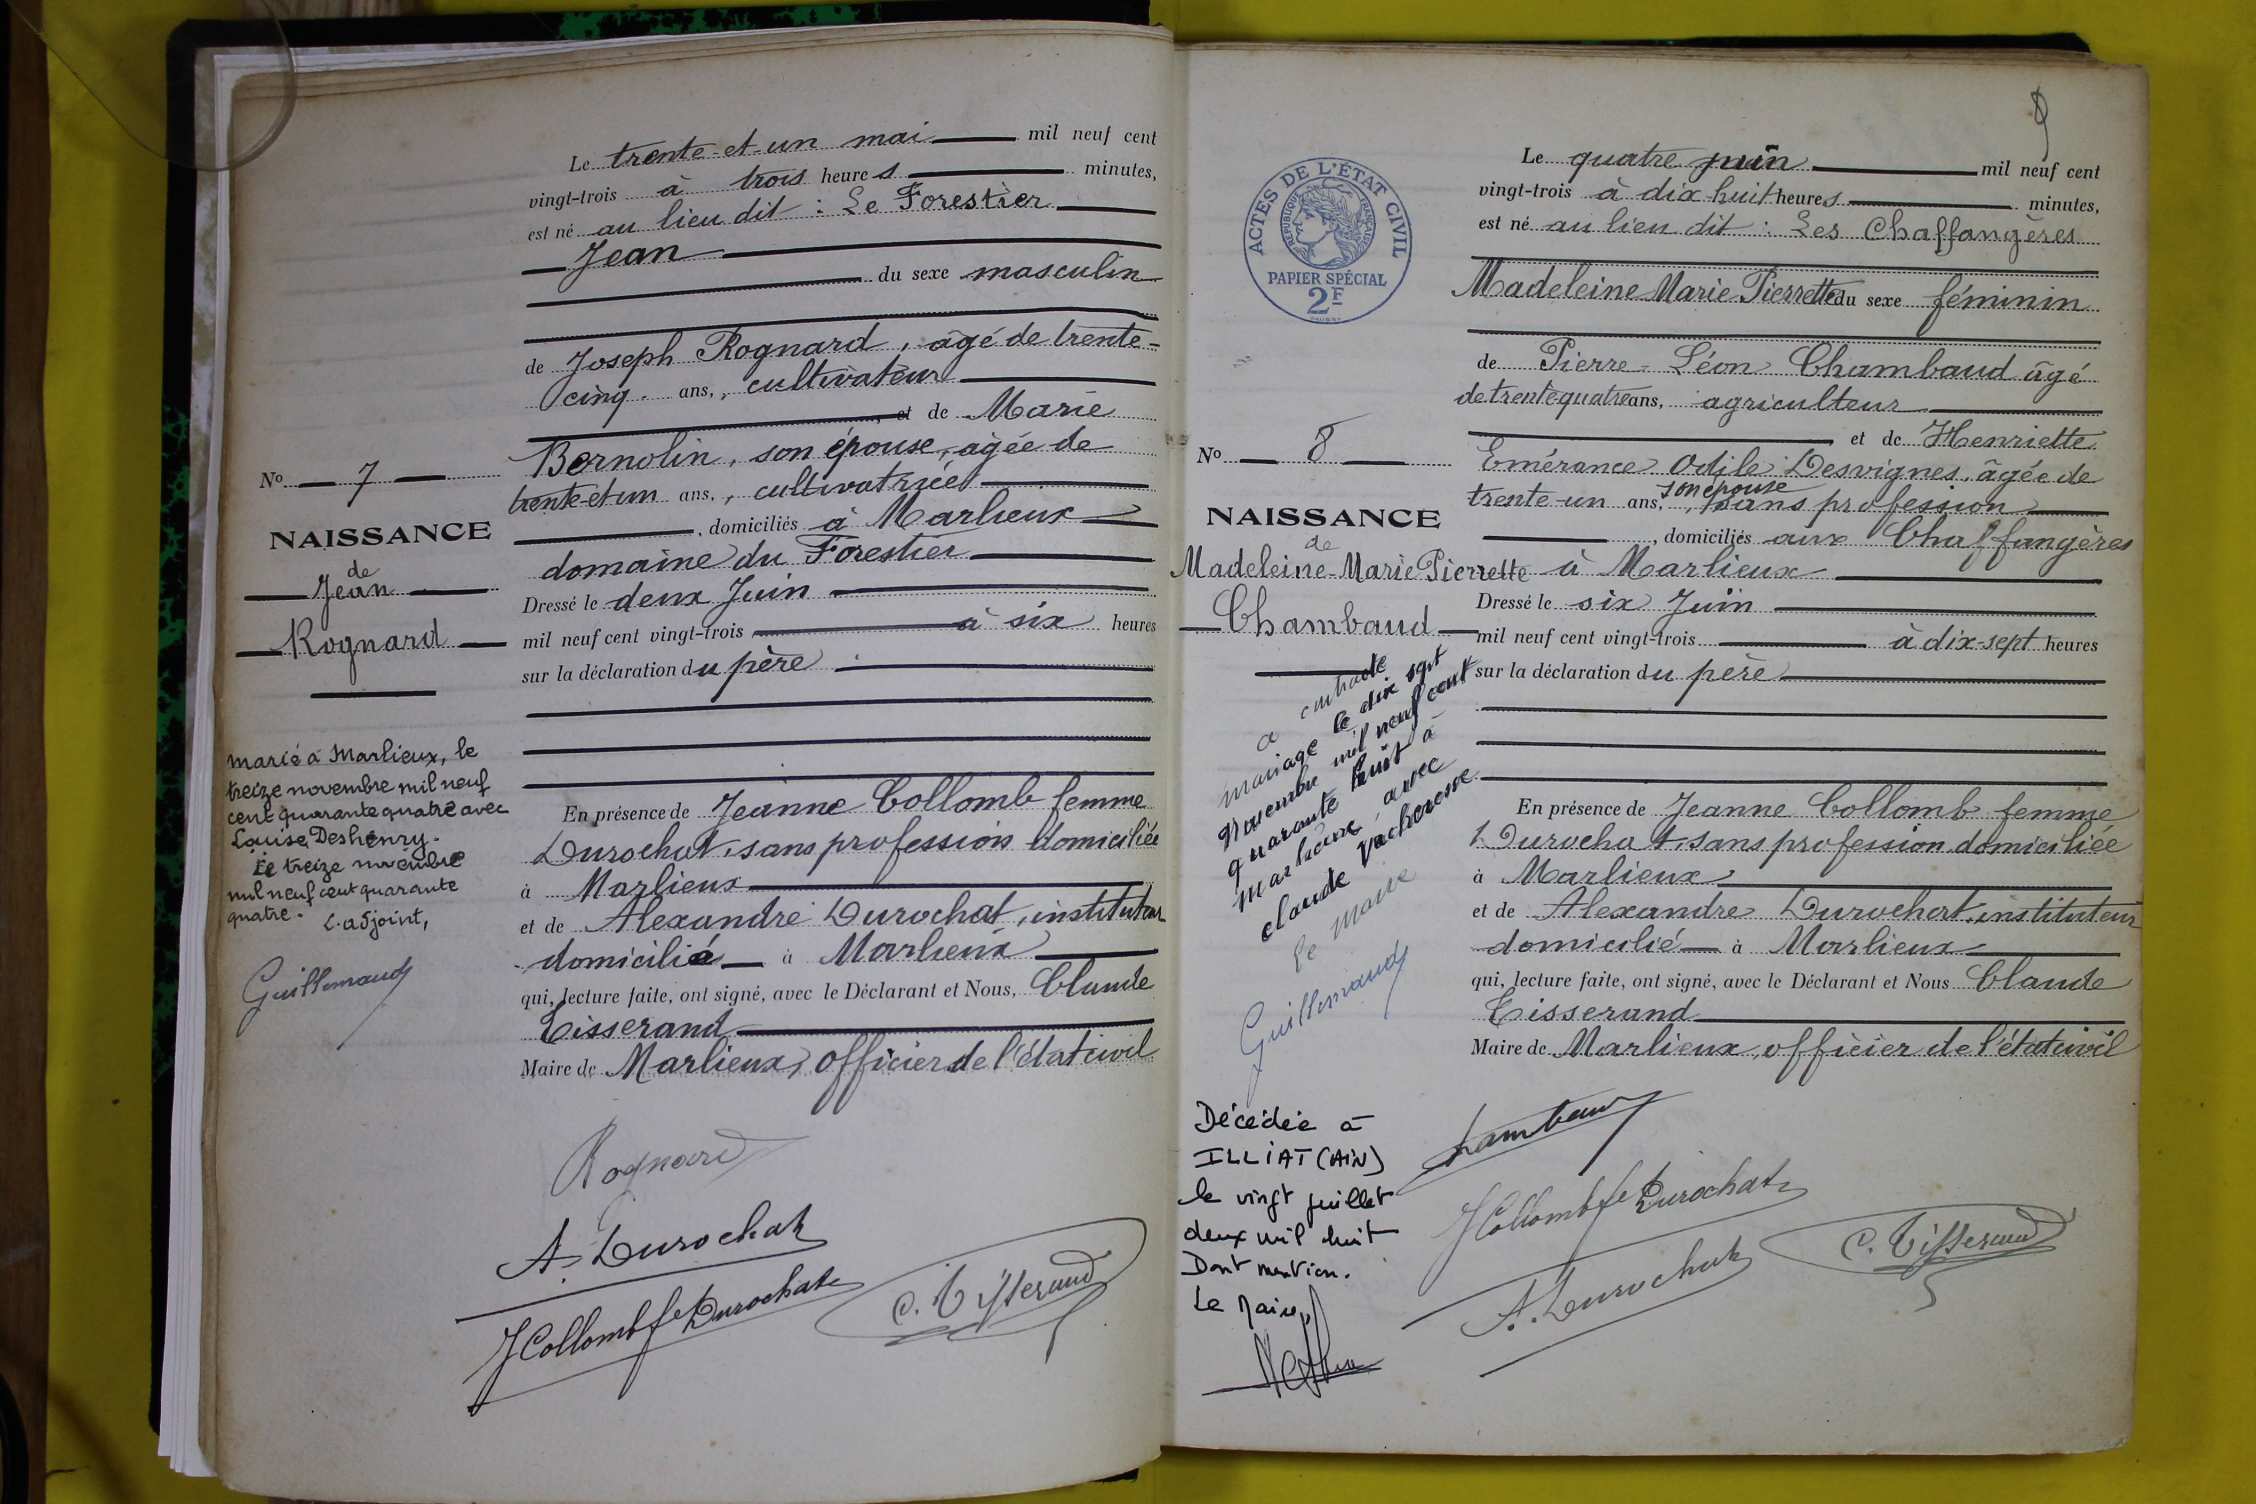 Le trente-et-un mai mil neuf cent
vingt-trois à trois heures minutes,
est né au lieu dit : Le Forestier
Jean
du sexe masculin
de Joseph Rognard, âgé de trente-
cinq ans, cultivateur
et de Marie
Bernolin, son épouse, âgée de
trente-et-un ans, cultivatrice
, domiciliés à Marlieux
domaine du Forestier
Dressé le deux Juin
mil neuf cent vingt-trois à six heures
sur la déclaration du père
En présence de Jeanne Collomb femme
Durochat, sans profession domiciliée
à Marlieux
et de Alexandre Durochat, instituteur
domicilié à Marlieux
qui, lecture faite, ont signé, avec le Déclarant et Nous, Claude
Tisserand
Maire de Marlieux, officier de l'état civil
Rognard
A. Durochat
J Collomb fe Durochat
C. Tisserand
No 7
NAISSANCE
de
Jean
Rognard
marié à Marlieux, le
treize novembre mil neuf
cent quarante quatre avec
Louise Deshenry.
Le treize novembre
mil neuf cent quarante
quatre.
L'adjoint,
Guillemaud
ACTES DE L'ÉTAT CIVIL
RÉPUBLIQUE FRANÇAISE
PAPIER SPÉCIAL
2F
Le quatre juin mil neuf cent
vingt-trois à dix-huit heures minutes,
est né au lieu dit : Les Chaffangères
Madeleine Marie Pierrette du sexe féminin
de Pierre-Léon Chambaud âgé
de trente-quatre ans, agriculteur
et de Henriette
Emérance Odile Desvignes, âgée de
trente-un ans, son épouse, sans profession
, domiciliés aux Chaffangères
à Marlieux
Dressé le six Juin
mil neuf cent vingt-trois à dix-sept heures
sur la déclaration du père
En présence de Jeanne Collomb femme
Durochat, sans profession domiciliée
à Marlieux
et de Alexandre Durochat, instituteur
domicilié à Marlieux
qui, lecture faite, ont signé, avec le Déclarant et Nous Claude
Tisserand
Maire de Marlieux, officier de l'état civil
Chambaud
J Collomb fe Durochat
A. Durochat
C. Tisserand
No 8
NAISSANCE
de
Madeleine-Marie Pierrette
Chambaud
a contracté
mariage le dix sept
Novembre mil neuf cent
quarante huit à
Marlieux, avec
Claude Vacheresse
Le Maire
Guillemaud
Décédée à
ILLIAT (AIN)
le vingt juillet
deux mil huit
Dont mention.
Le Maire,